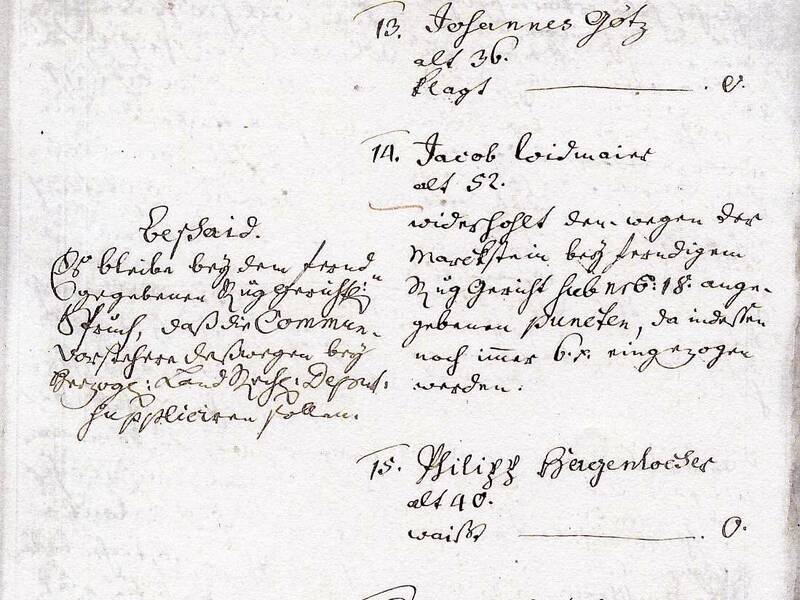 13. Johannes Götz
alt 36.
klagt ——— . 0.
14. Jacob Widmaier
alt 52.
widerhohlt den wegen der
Marckstein bey ferndigem
Rug Gericht sub nro: 18. ange-
gebenen puncten, da indessen
noch immer 6. x. eingezogen
werden.
Beschaid.
Es bleibe bey dem fernd
gegebenen Ruggerichtl:
Spruch, daß die Commun-
Vorstehere deßwegen bey
Herzogl: Land Rechn: Deput:
suppliciren sollen.
15. Philipp Hagenlocher
alt 40.
waißt ——— . 0.